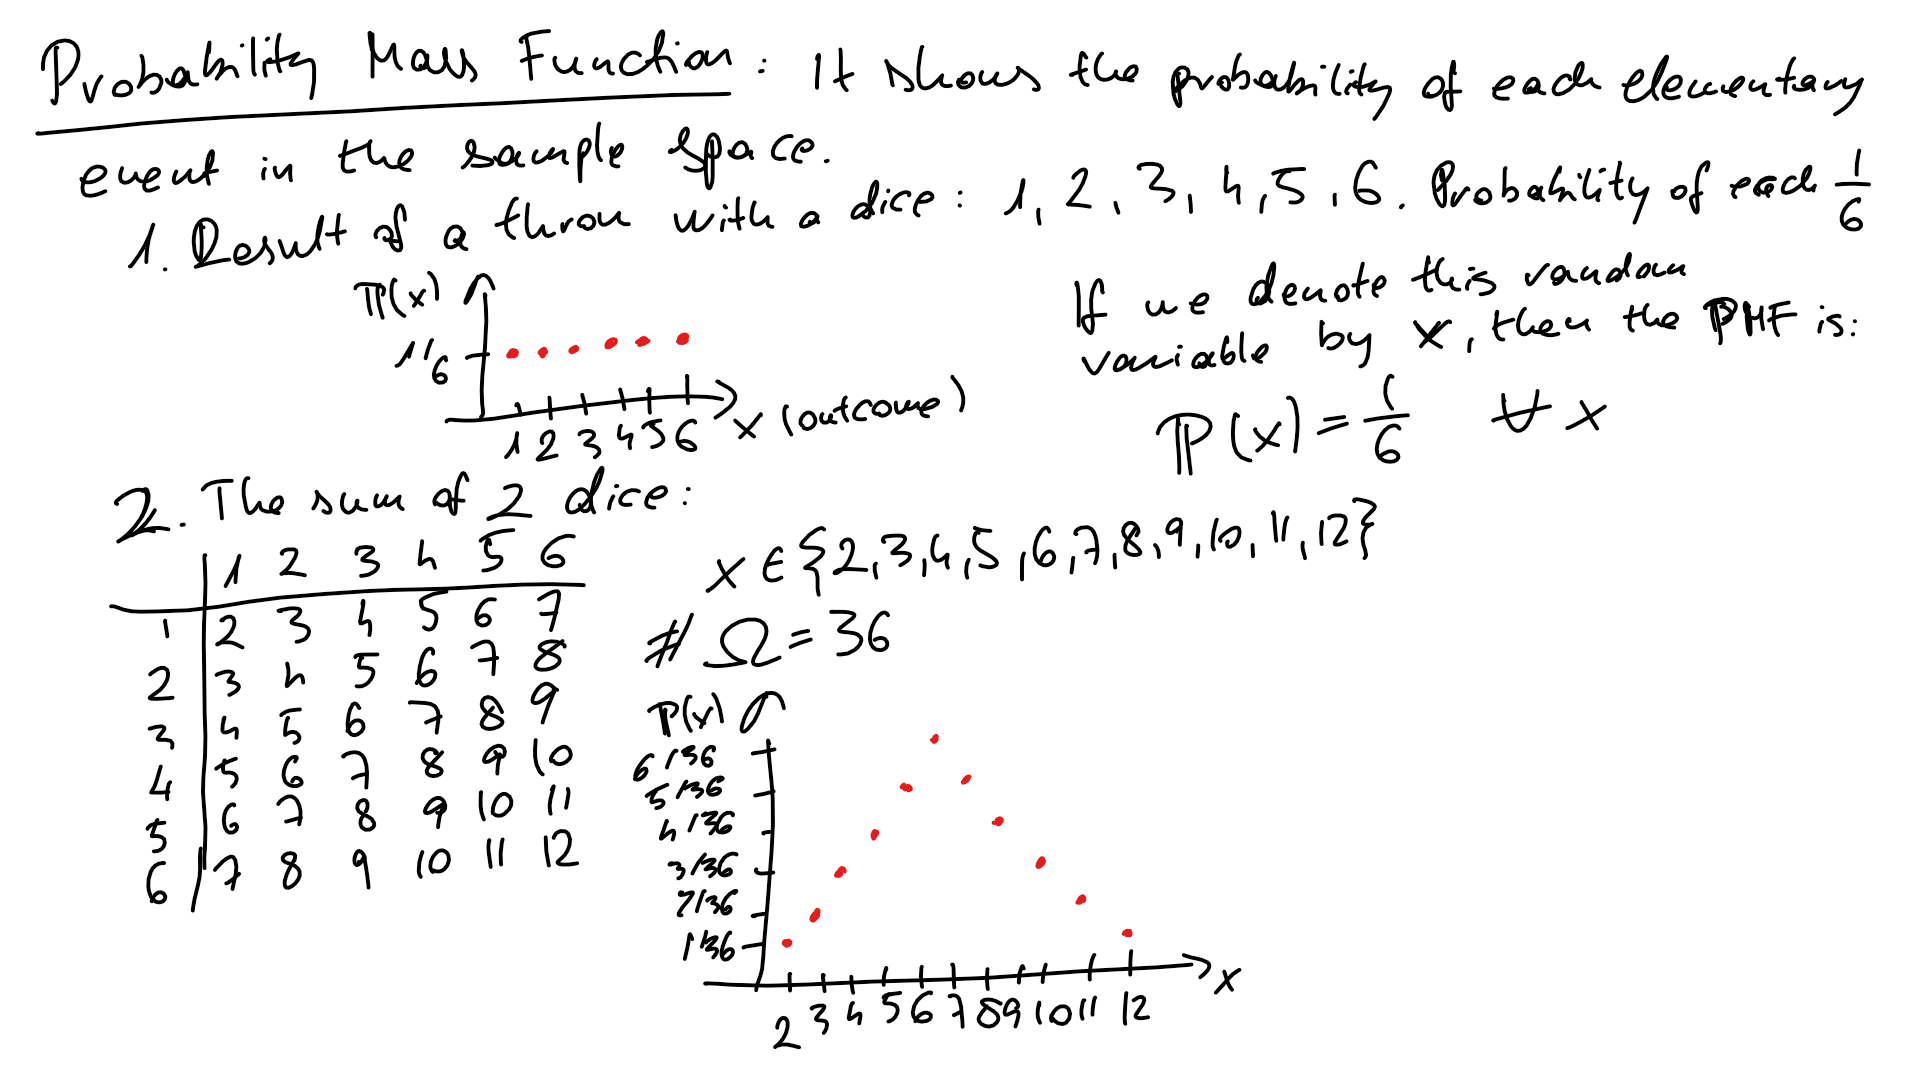 Probability Mass Function: It shows the probability of each elementary
event in the sample space.
1. Result of a throw with a dice: 1, 2, 3, 4, 5, 6. Probability of each 1/6
If we denote this random
variable by X, then the PMF is:
ℙ(x) = 1/6 ∀ x
ℙ(x)
1/6
1 2 3 4 5 6
x (outcome)
2. The sum of 2 dice:
1 2 3 4 5 6
1 2 3 4 5 6 7
2 3 4 5 6 7 8
3 4 5 6 7 8 9
4 5 6 7 8 9 10
5 6 7 8 9 10 11
6 7 8 9 10 11 12
x ∈ {2,3,4,5,6,7,8,9,10,11,12}
# Ω = 36
ℙ(x)
6/36
5/36
4/36
3/36
2/36
1/36
2 3 4 5 6 7 8 9 10 11 12
x